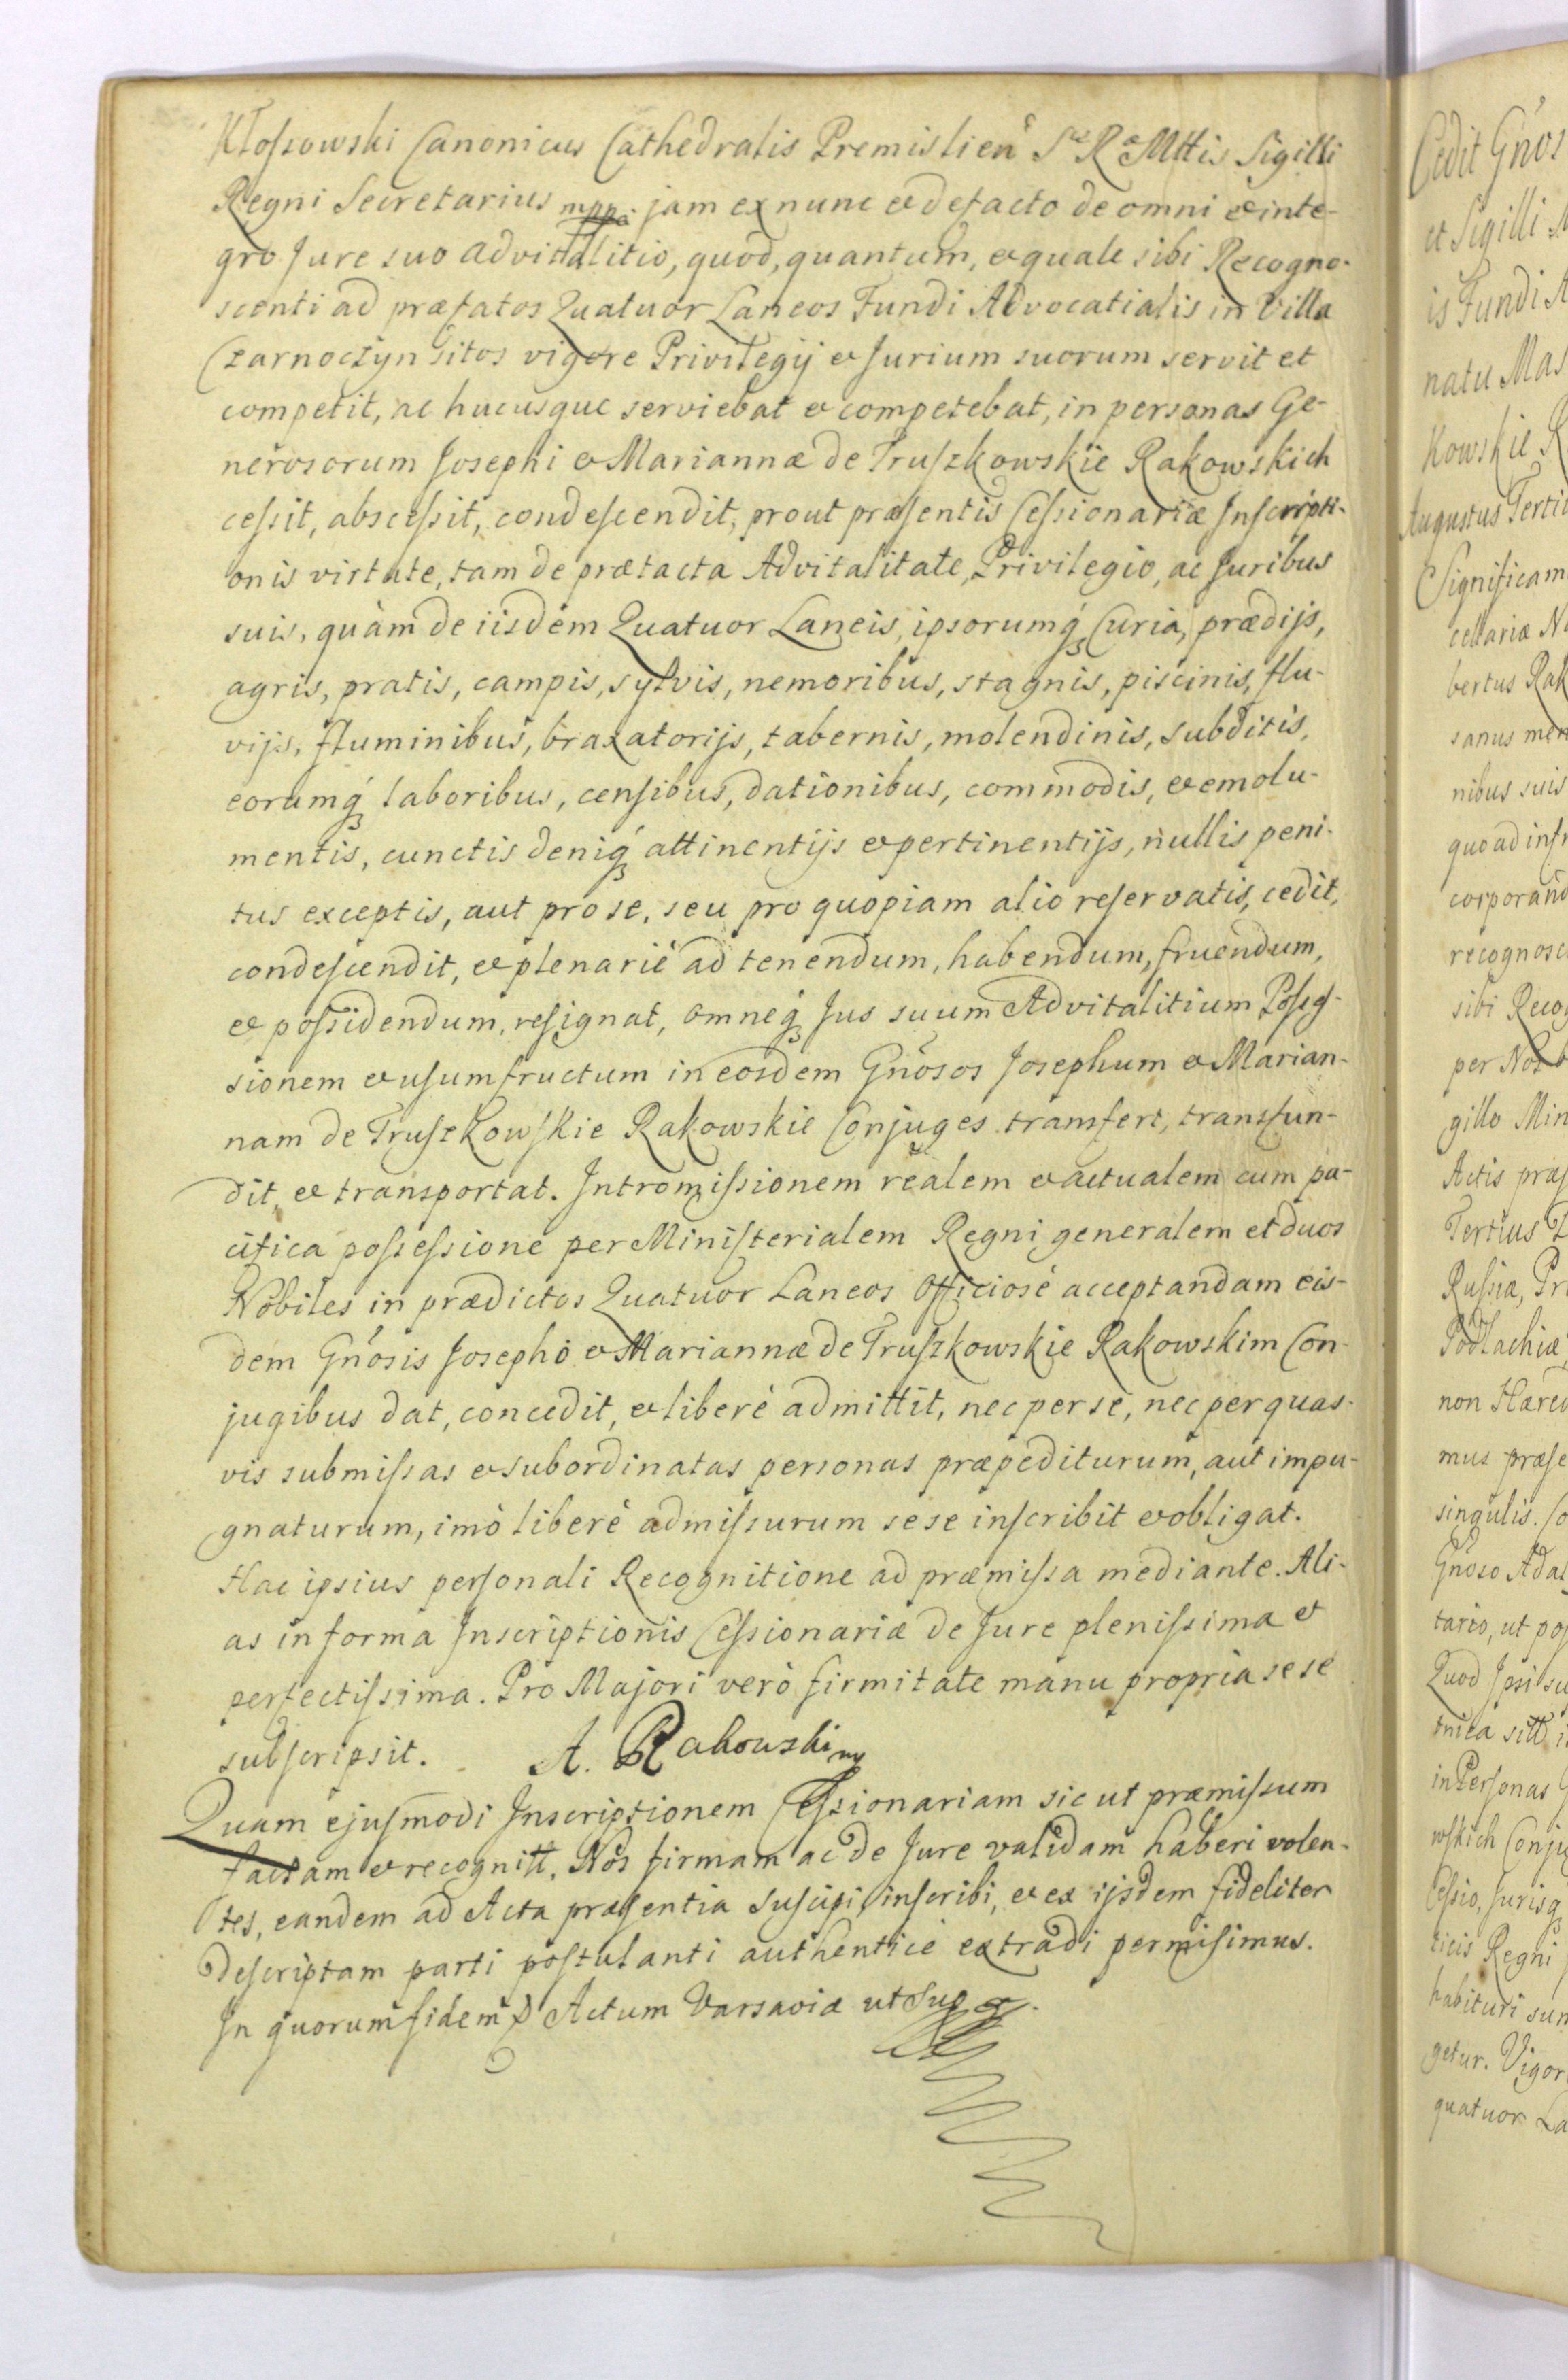 Kłossowski Canonicus Cathedralis Premislien Sae Rae Mttis Sigilli
Regni Secretarius mppa. jam ex nunc et de facto de omni et inte-
gro Jure suo advitalitio, quod, quantum, et quale sibi Recogno-
scenti ad præfatos Quatuor Laneos Fundi Advocatialis in Villa
Czarnoczyn sitos vigore Privilegij et Jurium suorum servit et
competit, ac hucusque serviebat et competebat, in personas Ge-
nerosorum Josephi et Mariannæ de Truszkowskie Rakowskich
cessit, abscessit, condescendit, prout præsentis Cessionariæ Inscripti-
onis virtute, tam de prætacta Advitalitate, Privilegio, ac Juribus
suis, quàm de iisdem Quatuor Laneis, ipsorumq́ Curia, prædijs,
agris, pratis, campis, sylvis, nemoribus, stagnis, piscinis, flu-
vijs, fluminibus, braxatorijs, tabernis, molendinis, Subditis,
eorumq́ laboribus, censibus, dationibus, commodis, et emolu-
mentis, cunctis deniq́ attinentijs et pertinentijs, nullis peni-
tus exceptis, aut pro se, seu pro quopiam alio reservatis, cedit,
condescendit, et plenariè ad tenendum, habendum, fruendum,
et possidendum, resignat, omneq́ Jus suum Advitalitium Posses-
sionem et usumfructum in eosdem Gnõsos Josephum et Marian-
nam de Truszkowskie Rakowskie Conjuges transfert, transfun-
dit, et transportat. Intromissionem realem et actualem cum pa-
cifica possessione per Ministerialem Regni generalem et duos
Nobiles in prædictos Quatuor Laneos Officiosè acceptandam eis-
dem Gnõsis Josepho et Mariannæ de Truszkowskie Rakowskim Con-
jugibus dat, concedit, et liberè admittit, nec per se, nec per quas-
vis submissas et subordinatas personas præpediturum, aut impu-
gnaturum, imò liberè admissurum sese inscribit et obligat.
Hac ipsius personali Recognitione ad præmissa mediante. Ali-
as in forma Inscriptionis Cessionariæ de Jure plenissima et
perfectissima. Pro Majori verò firmitate manu propria sese
subscripsit. A. Rakowski
Quam ejusmodi Inscriptionem Cessionariam sic ut præmissum
factam et recognitt. Nos firmam ac de Jure validam haberi volen-
tes, eandem ad Acta præsentia Suscipi, inscribi, et ex ijsdem fideliter
descriptam parti postulanti authenticè extradi permisimus.
In quorum fidem Actum Varsaviæ ut Sup
Cedit Gnõs
et Sigilli
is Fundi
natu Mas
kowskie R
Augustus Terti
Significam
cellariæ
bertus Rak
sanus men
nibus suis
quo ad
corporand
recognosc
sibi Recog
per Nos
gillo Min
Actis præs
Tertius
Russiæ, Pr
Podlachiæ
non Hæred
mus præse
singulis. Co
Gnõso Adal
tario, ut pos
Quod Ipsi su
sitt
in Personas
wskich Conju
Cessio, Jurisq́
Regni
habituri sun
getur. Vigor
quatuor La